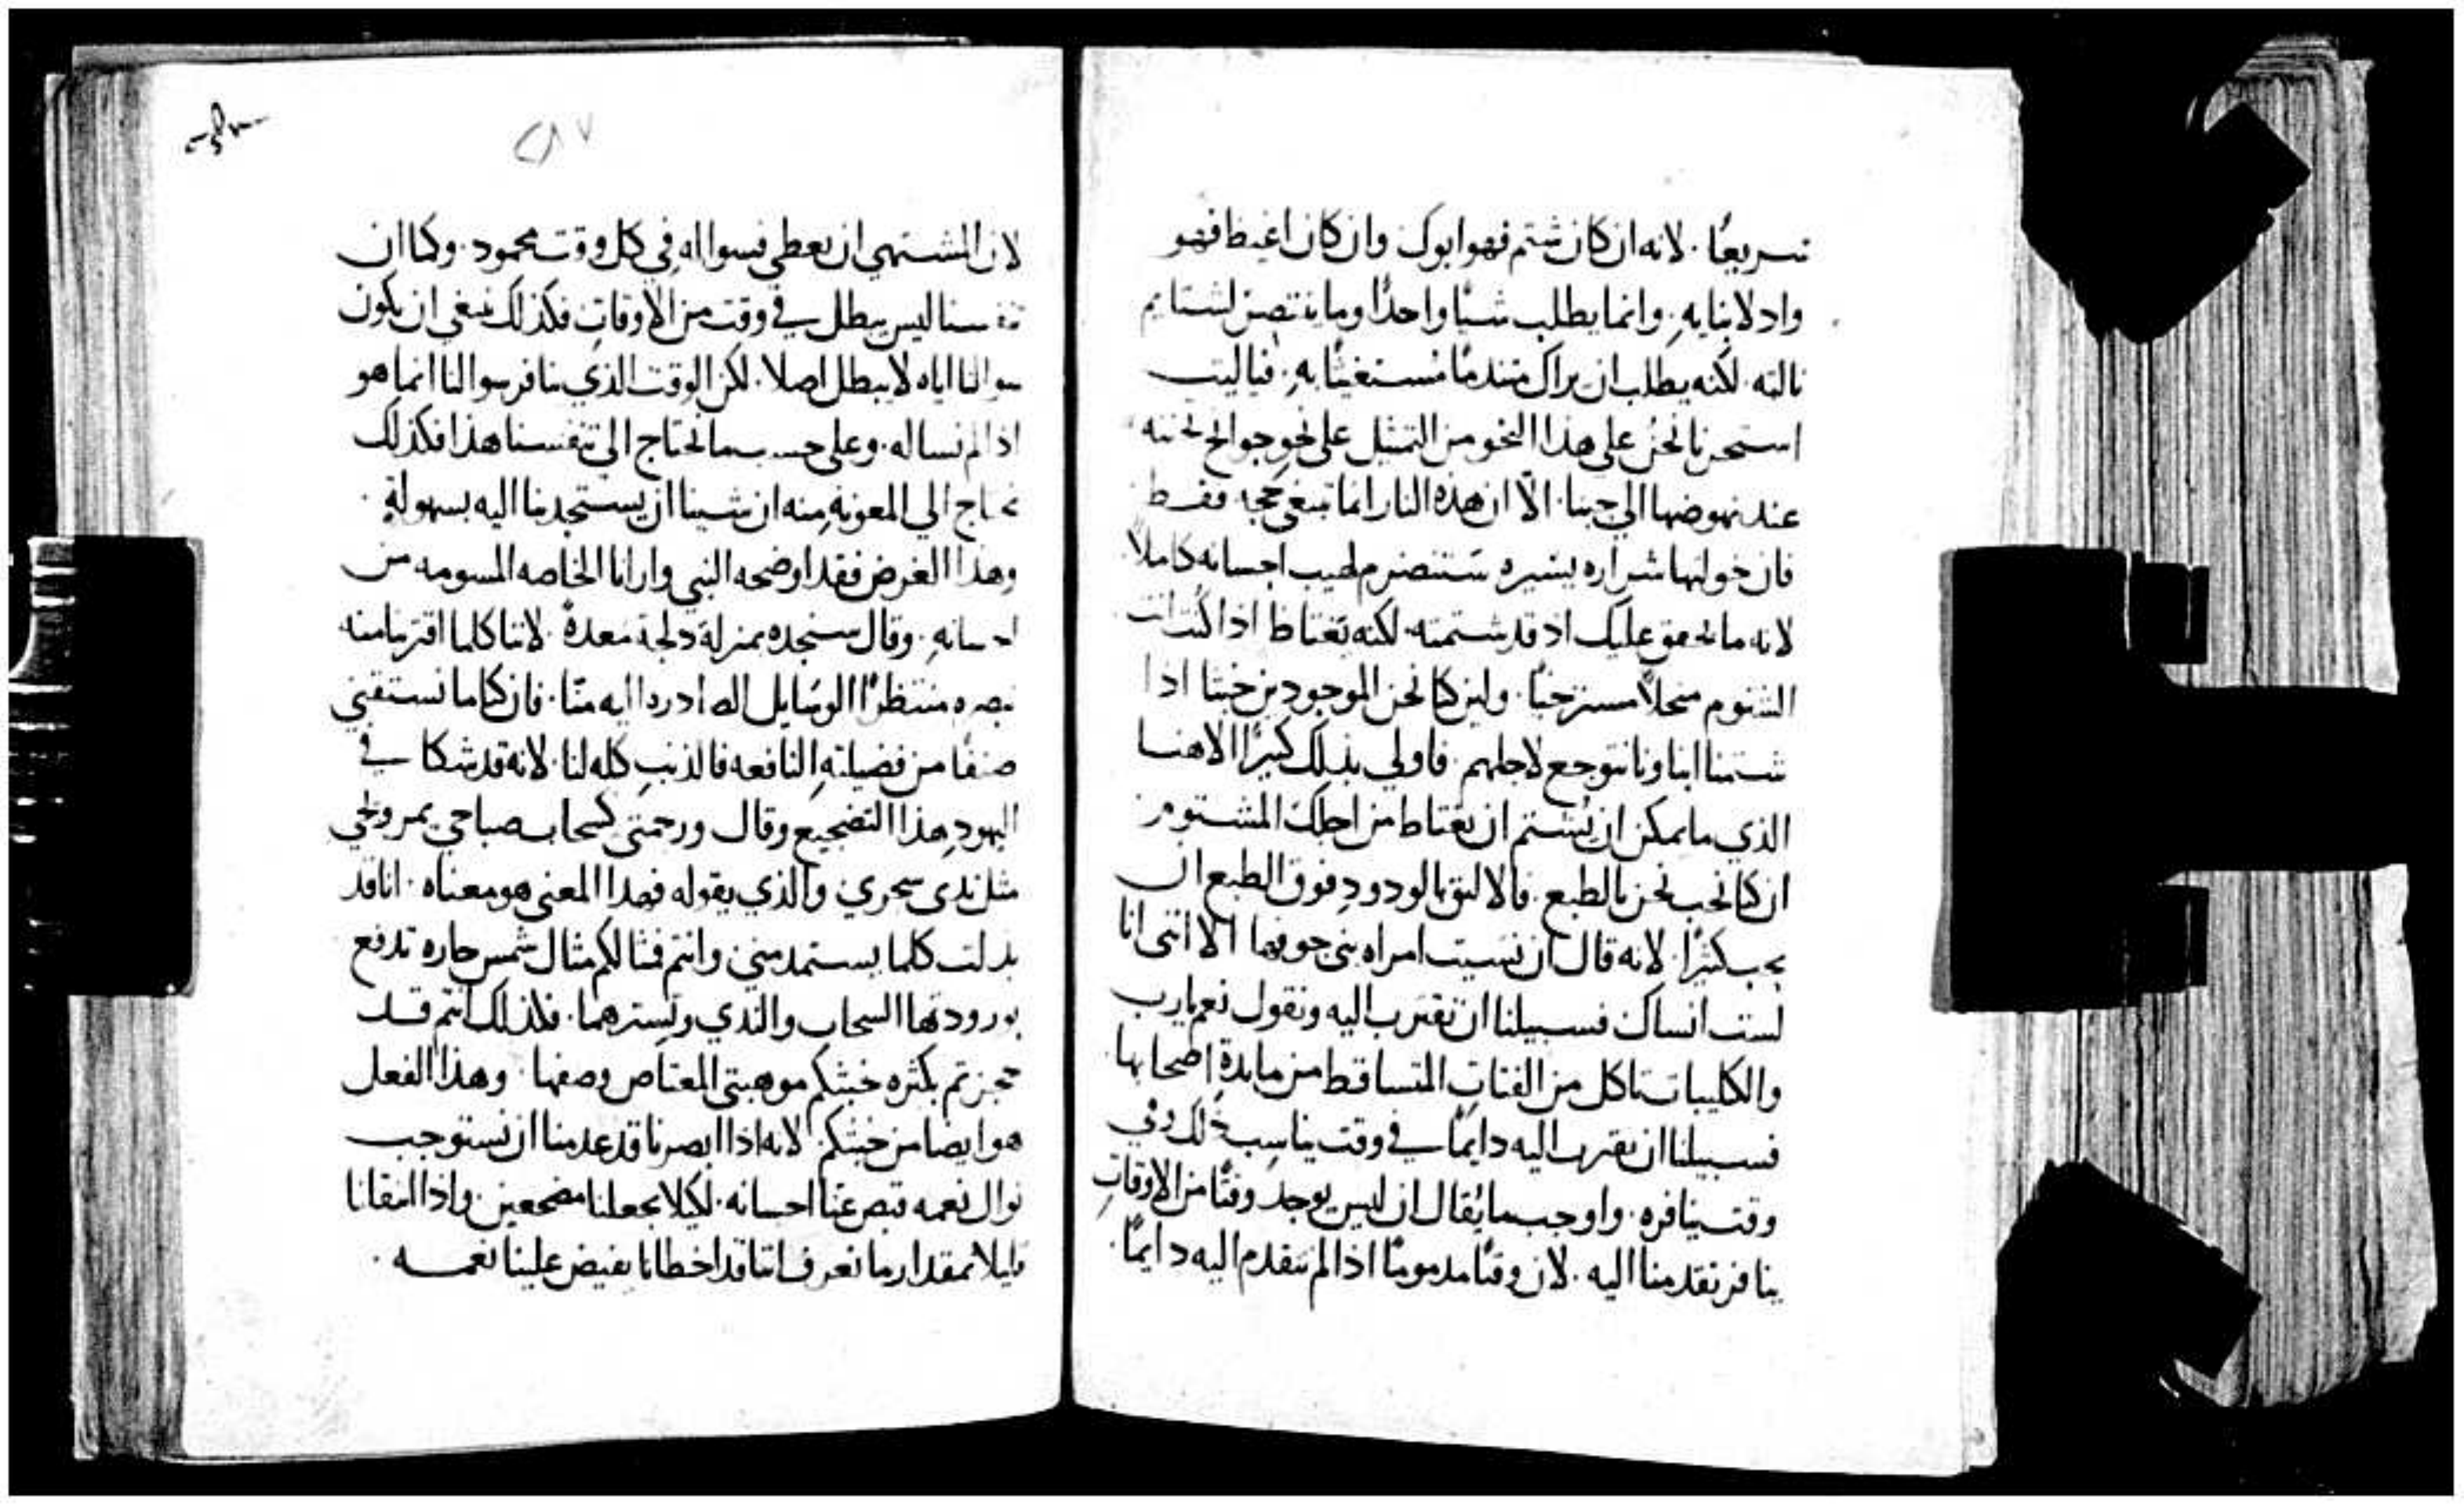 سريعًا. لانه ان كان شتم فهو ابوك وان كان اغيظ فهو
واد لابنايه. وانما يطلب شيًا واحدًا وما يقتص لشتايم
نالته. لكنه يطلب ان يراك متندمًا مستغيثًا به. فياليت
نحن على هذا النحو من التمثل على نحو جوانح تحننه
عند نهوضها الي حبنا. الا ان هذه النار انما تبتغي حجه فقط
فان خولتها شراره يسيره ستضرم لهيب احسانه كاملًا
لانه ما يحنق عليك اذ قد شتمته. لكنه يغتاظ اذا كنت انت
الشتوم منحلًا. ولين كنا نحن الموجودين خبثا اذا
شتمنا ابناونا نتوجع لاجلهم. فاولي بذلك كثيرًا الاهنا
الذي ما يمكن ان يشتم ان يغتاظ من اجلك المشتوم.
ان كنا نحب نحن بالطبع. فالاليق بالودود فوق الطبع ان
يحب كثيرًا. لانه قال ان نسيت امراه بني جوفها الا انني انا
لست انساك فسبيلنا ان نقترب اليه ونقول نعم يارب
والكليبات تاكل من الفتات المتساقط من مايدة اصحابها.
فسبيلنا ان نقترب اليه دايمًا في وقت يناسب ذلك وفي
وقت ينافره. واوجب ما يُقال ان ليس يوجد وقتًا من الاوقات
ينافر تقدمنا اليه. لان وقتًا مذمومًا اذا لم نتقدم اليه دايمًا.
٢٨٧
لان المشتهي ان يعطي فسواله في كل وقت محمود. وكما ان
تنفسنا ليس يبطل في وقت من الاوقات فكذلك ينبغي ان يكون
سوالنا اياه لا يبطل اصلا. لكن الوقت الذي ينافر سوالنا انما هو
اذا لم نساله. وعلى حسب ما نحتاج الى تنفسنا هذا فكذلك
نحتاج الي المعونة منه ان شينا ان يستجدبنا اليه بسهولة.
وهذا الغرض فقد اوضحه النبي وارانا الخاصه المسومه من
احسانه. وقال سنجده بمنزلة دلجة معدة. لاننا كلما اقتربنا منه
نبصره منتظرًا الوسايل الصادره اليه منّا. فان كنا ما نستقني
صنفًا من فضيلته النافعه فالذنب كله لنا. لانه قد شكا في
اليهود هذا التضجيع وقال ورحمتي كسحاب صباحي يمر
مثل ندى سحري والذي يقوله فهذا المعنى هو معناه. انا قد
بذلت كلما يستمد مني وانتم فمثالكم مثال شمس حاره تدفع
بورودها السحاب والندي وتسترهما. فلذلك انتم قد
حجزتم بكثره خبثكم موهبتي المعتاص وصفها. وهذا الفعل
هو ايضا من خبثكم لانه اذا ابصرنا قد عدمنا ان نستوجب
نوال نعمه قبض عنّا احسانه. لكيلا يجعلنا مضجعين. واذا انتقلنا
قليلا بمقدار ما نعرف اننا قد اخطانا يفيض علينا نعمه.